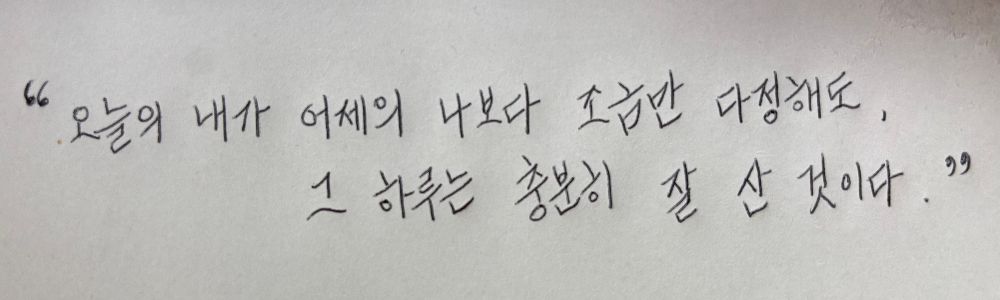 “오늘의 내가 어제의 나보다 조금만 다정해도,
그 하루는 충분히 잘 산 것이다.”